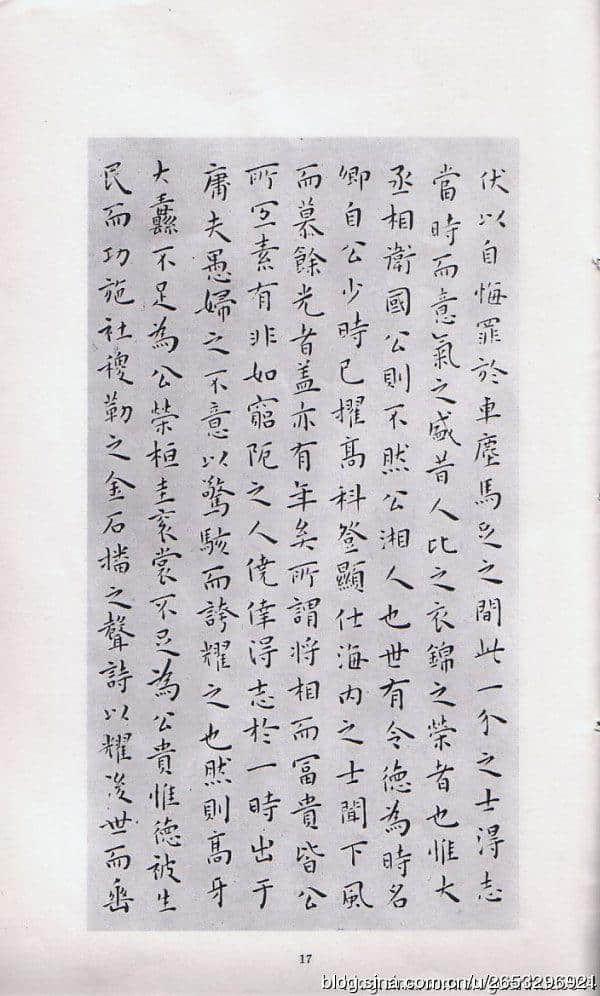 伏以自悔罪於車塵馬足之間此一介之士得志
當時而意氣之盛昔人比之衣錦之榮者也惟大
丞相衛國公則不然公湘人也世有令德為時名
卿自公少時已擢高科登顯仕海內之士聞下風
而慕餘光者盖亦有年矣所謂將相而富貴皆公
所宜素有非如窮阨之人僥倖得志於一時出于
庸夫愚婦之不意以驚駭而誇耀之也然則高牙
大纛不足為公榮桓圭袞裳不足為公貴惟德被生
民而功施社稷勒之金石播之聲詩以耀後世而垂
17
blog.sina.com.cn/u/2653296921